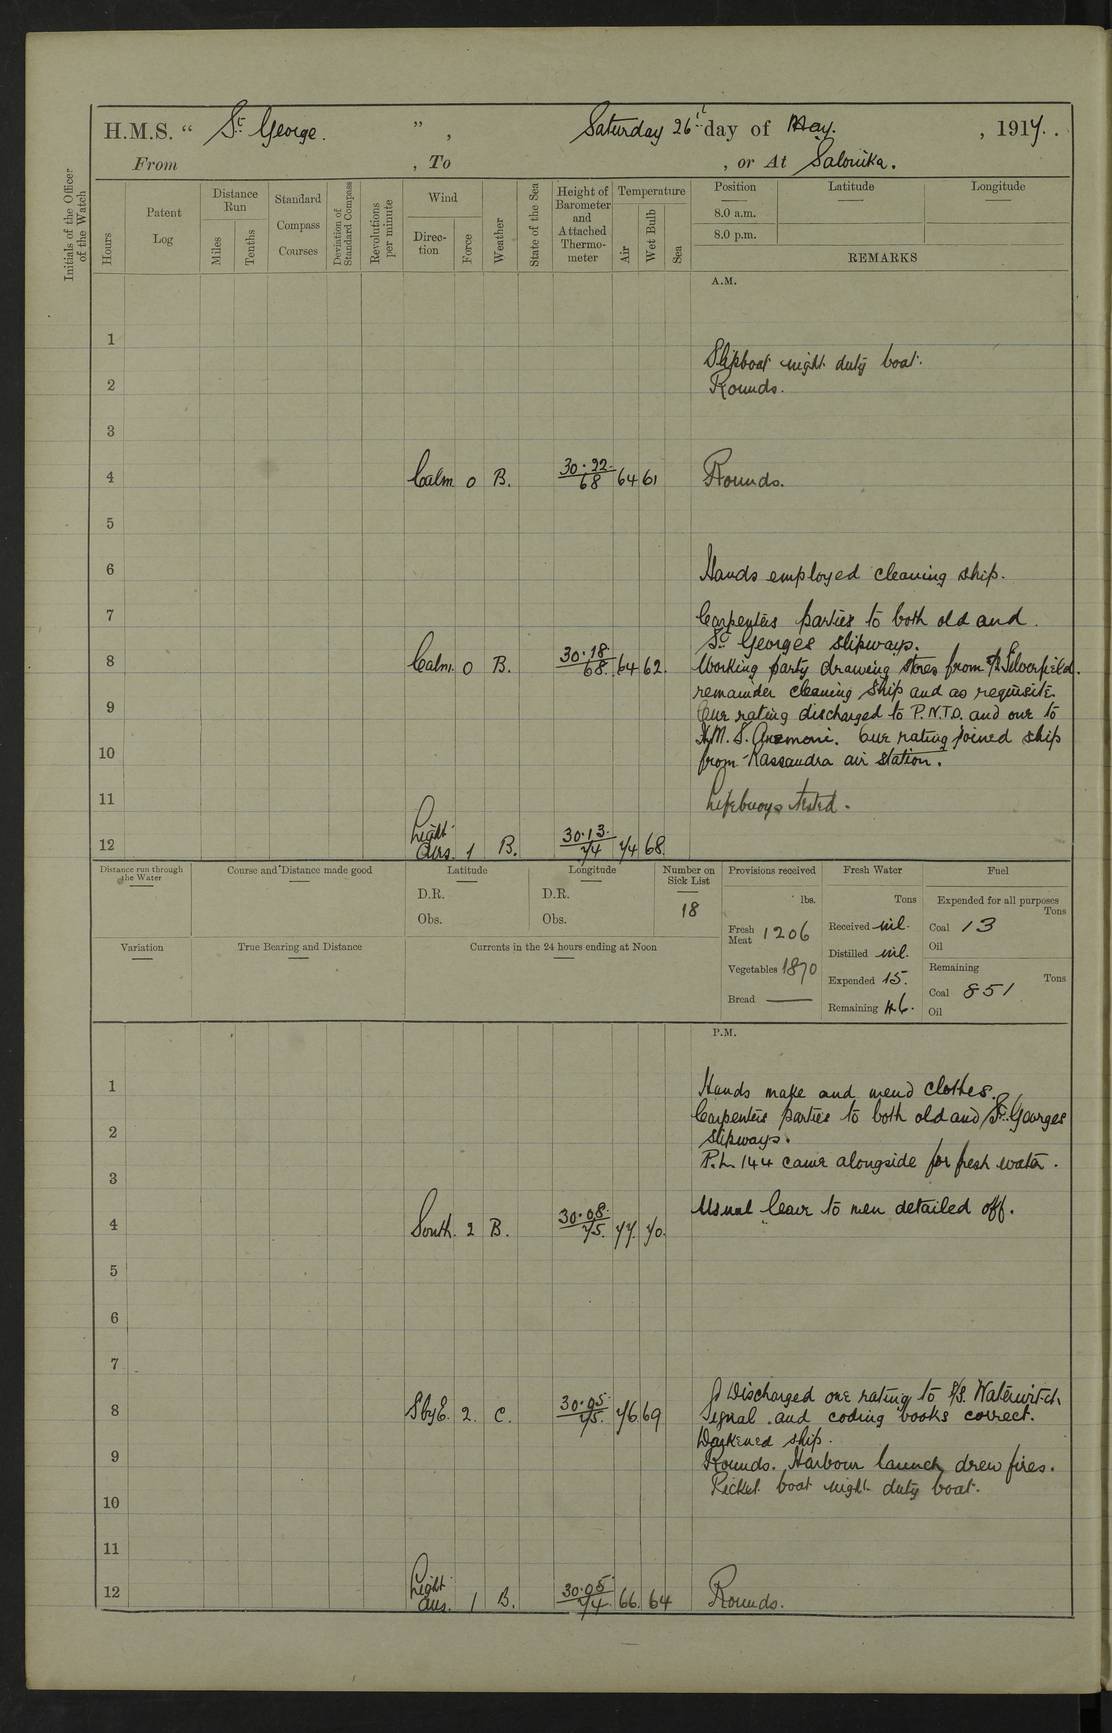 H.M.S. “ St. George. ” , Saturday 26th day of May. , 1917.
From , To , or At Salonika.
Initials of the Officer of the Watch
Hours
Patent Log
Distance Run
Miles
Tenths
Standard Compass Courses
Deviation of Standard Compass
Revolutions per minute
Wind
Direction
Force
Weather
State of the Sea
Height of Barometer and Attached Thermometer
Temperature
Air
Wet Bulb
Sea
Position Latitude Longitude
8.0 a.m.
8.0 p.m.
REMARKS
A.M.
1
Slipboat night duty boat.
2 Rounds.
3
4 Calm 0 B. 30.22 68 64 61 Rounds.
5
6 Hands employed cleaning ship.
7 Carpenters parties to both old and
St. Georges slipways.
8 Calm. 0 B. 30.18 68. 64 62. Working party drawing stores from Silverfield.
remainder cleaning ship and as requisite.
9 One rating discharged to P.N.T.O. and one to
H.M.S. Anemoni. One rating joined ship
10 from Kassandra air station.
11 Lifebuoys tested.
12 Light airs. 1 B. 30.13. 74 74 68.
Distance run through the Water
Course and Distance made good
Latitude
D.R.
Obs.
Longitude
D.R.
Obs.
Number on Sick List
18
Provisions received
lbs.
Fresh Meat 1206
Vegetables 1870
Bread ——
Fresh Water
Tons
Received nil.
Distilled nil.
Expended 15.
Remaining
Fuel
Expended for all purposes
Tons
Coal 13
Oil
Remaining
Tons
Coal 851
Oil
Variation
True Bearing and Distance
Currents in the 24 hours ending at Noon
P.M.
1 Hands make and mend clothes.
Carpenters parties to both old and St. Georges
2 slipways.
P.L. 144 came alongside for fresh water.
3
Usual leave to men detailed off.
4 South. 2 B. 30.08. 75. 77. 70.
5
6
7
Discharged one rating to S/S. Waterwitch
8 S by E. 2. C. 30.05 75. 76 69 Signal and coding books correct.
Darkened ship.
9 Rounds. Harbour launch drew fires.
Picket boat night duty boat.
10
11
12 Light airs. 1 B. 30.05 74 66. 64 Rounds.